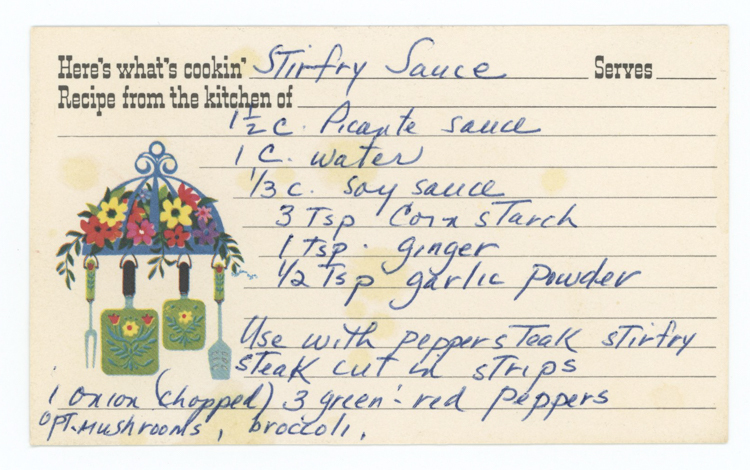 Here's what's cookin' Stirfry Sauce Serves
Recipe from the kitchen of
1 1/2 c. Picante sauce
1 c. water
1/3 c. soy sauce
3 Tsp Corn starch
1 tsp. ginger
1/2 Tsp garlic powder
Use with peppersteak stirfry
steak cut in strips
1 onion (chopped) 3 green - red peppers
opt. mushrooms, broccoli.